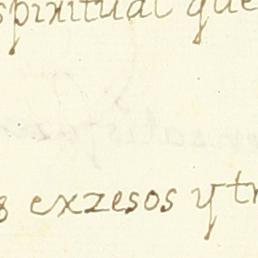 spiritual que
exzesos y tr